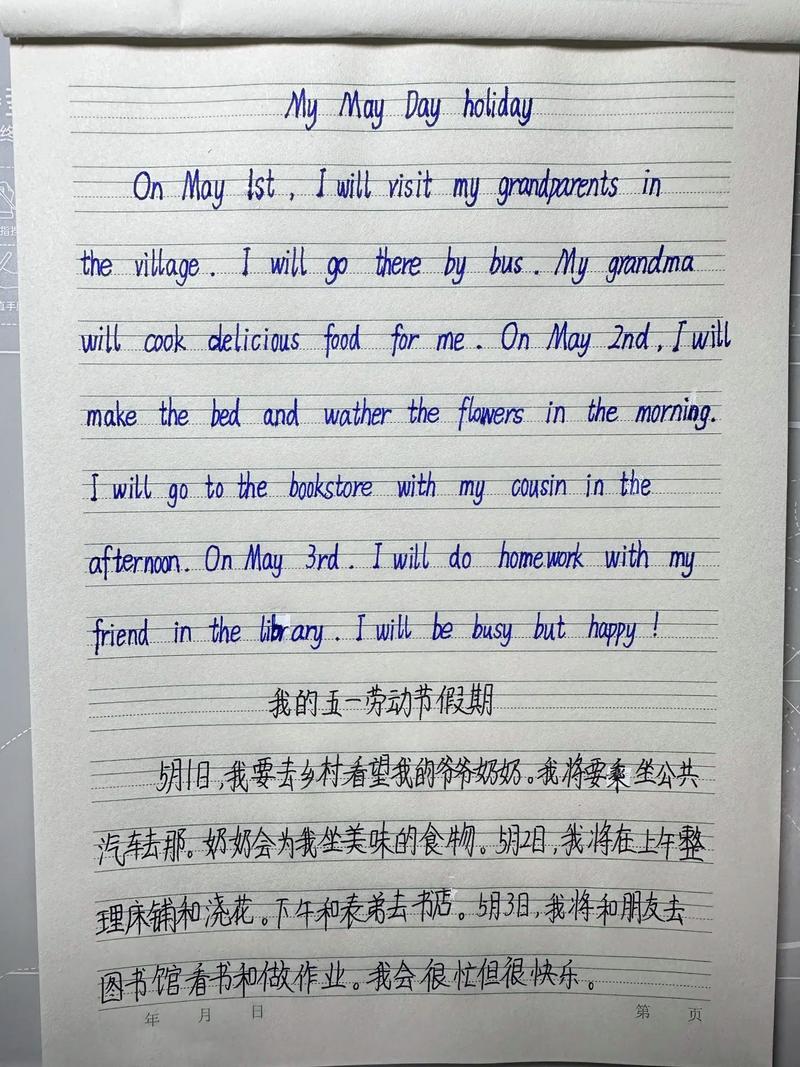 My May Day holiday
On May 1st, I will visit my grandparents in
the village. I will go there by bus. My grandma
will cook delicious food for me. On May 2nd, I will
make the bed and wather the flowers in the morning.
I will go to the bookstore with my cousin in the
afternoon. On May 3rd. I will do homework with my
friend in the library. I will be busy but happy!
我的五一劳动节假期
5月1日,我要去乡村看望我的爷爷奶奶。我将要乘坐公共
汽车去那。奶奶会为我坐美味的食物。5月2日,我将在上午整
理床铺和浇花。下午和表弟去书店。5月3日,我将和朋友去
图书馆看书和做作业。我会很忙但很快乐。
年 月 日 第 页